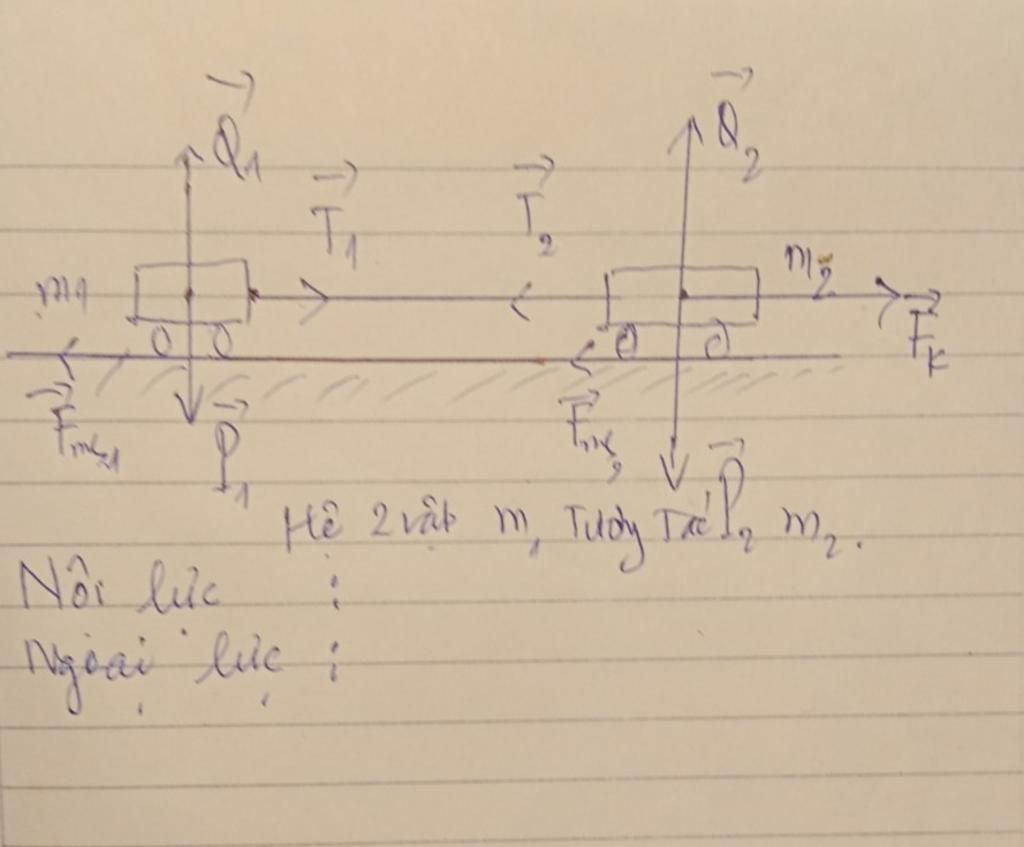 Q₁
Q₂
T₁
T₂
m1
m₂
F_K
F_ms1
F_ms2
P₁
P₂
Hệ 2 vật m₁ Tương Tác m₂.
Nội lực :
Ngoại lực :